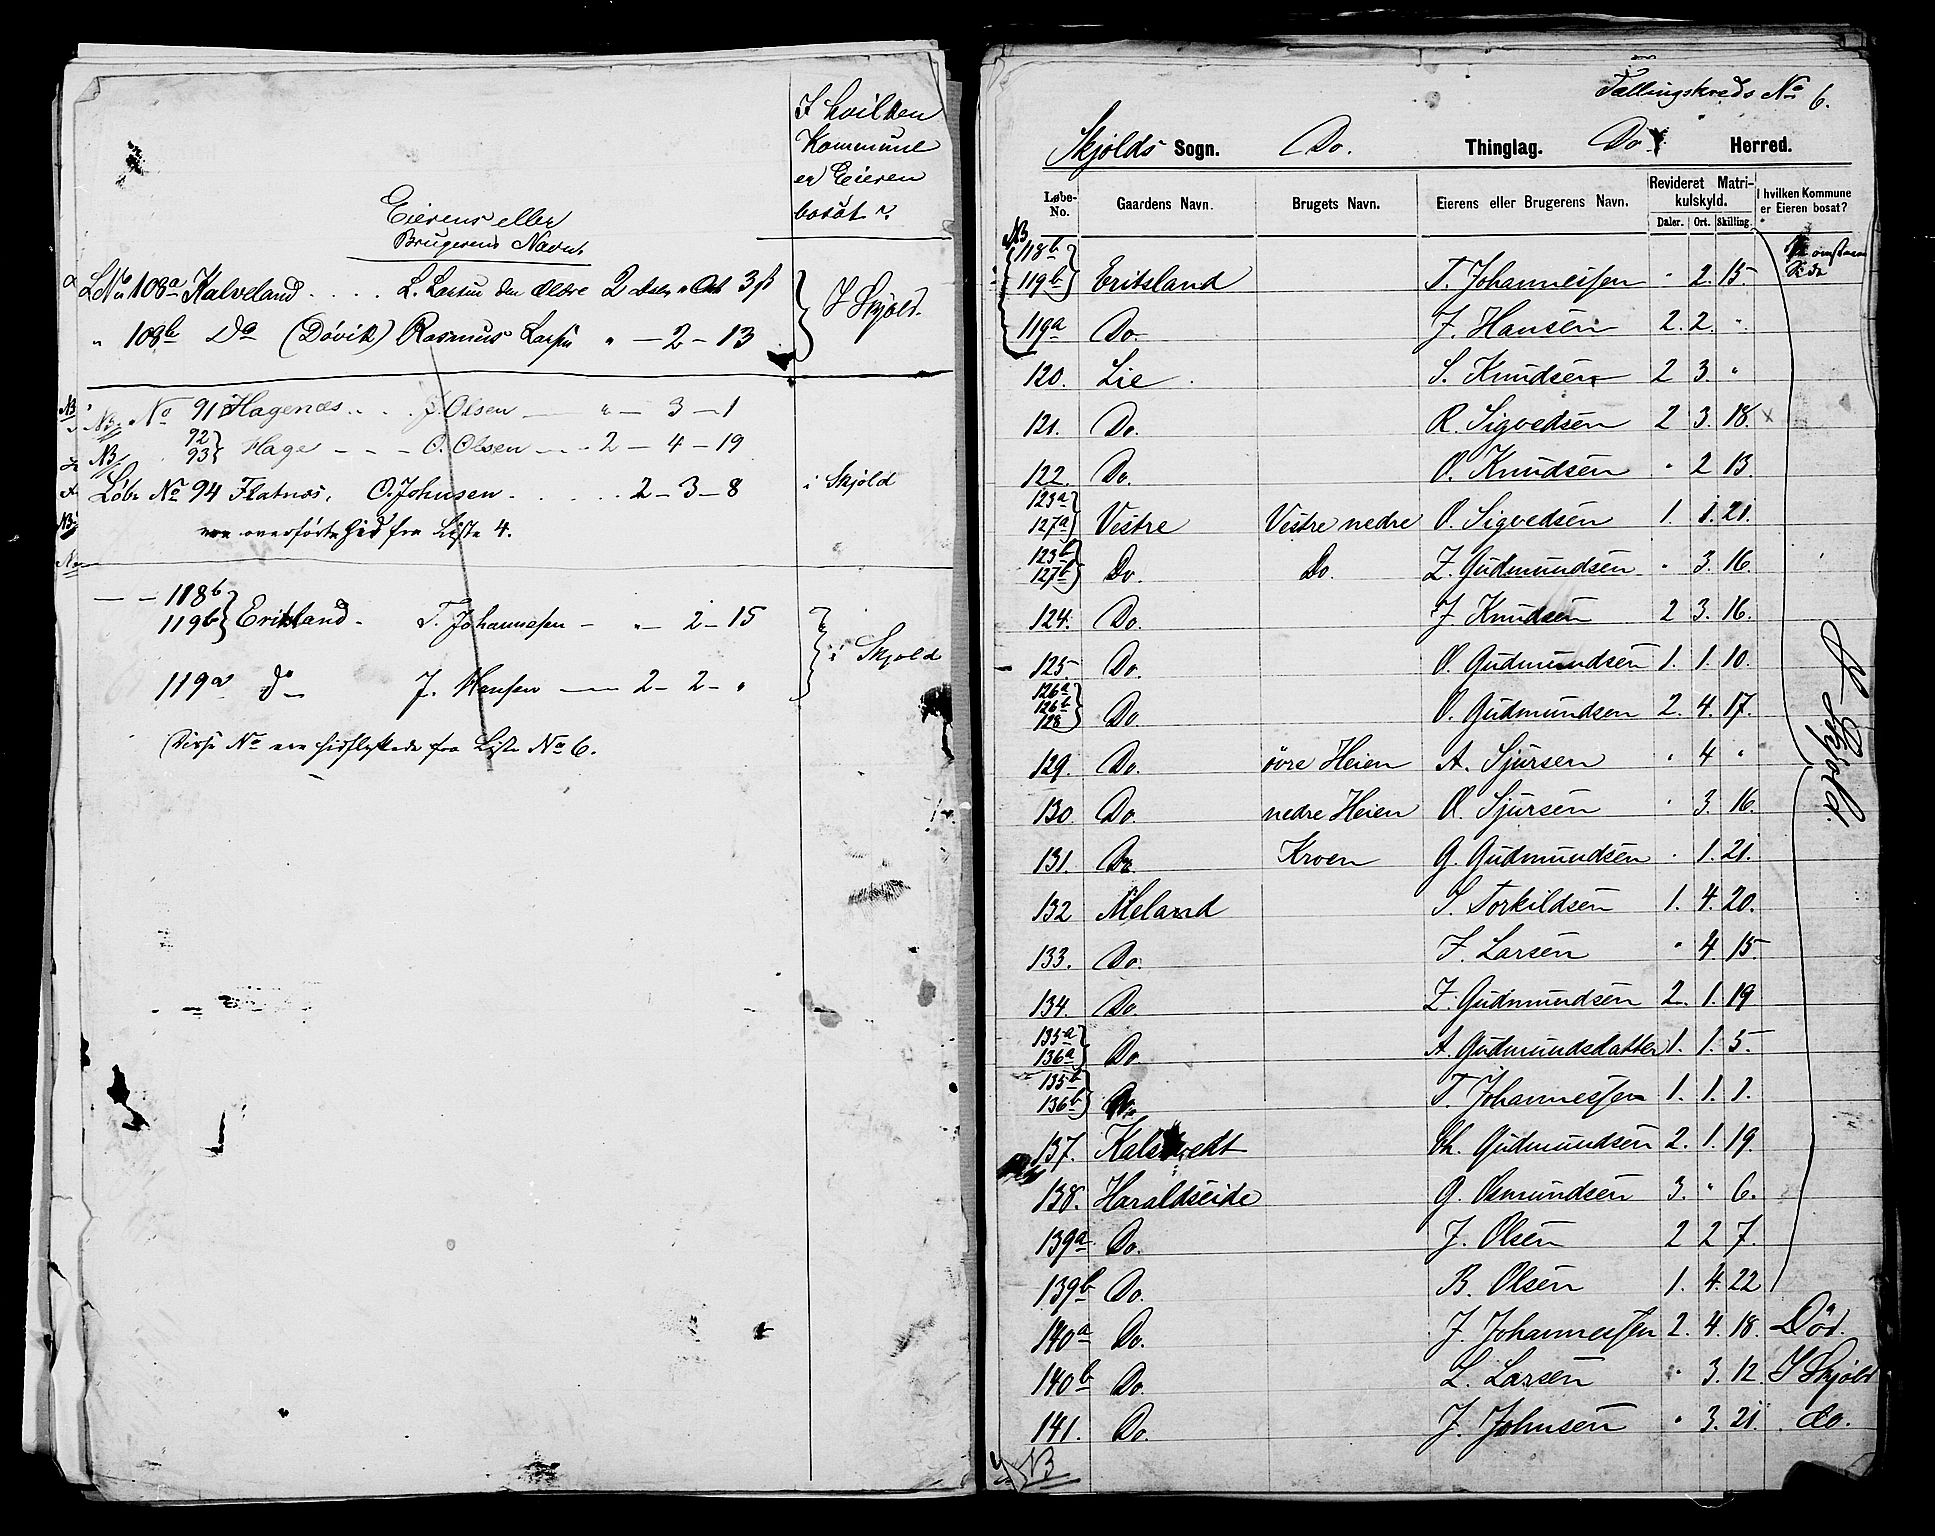 I hvilken
Kommune
er Eieren
bosat?
Eierens eller
Brugerens Navn.
LNo 108a Kalveland .... L. Larsen den Ældre 2 Daler " Ort 3 ß
" 108b Do (Dövik) Rasmus Larsen " - 2 - 13
I Skjold.
NB. No 91 Hagenæs... J. Olsen — " - 3 - 1
NB 92 93} Hage - - - O. Olsen - - 2 - 4 - 19
Löbe No 94 Flatnæs, O. Johnsen. .... 2 - 3 - 8 i Skjold
ere overförte hid fra Liste 4.
— — 118b
119b} Eriksland - T. Johannesen - " - 2 - 15
i Skjold
119a do J. Hansen — 2 - 2 - "
Disse No ere hidflyttede fra Liste No 6.
Tællingskreds No 6.
Skjolds Sogn. Do. Thinglag. Do. Herred.
Løbe-No. Gaardens Navn. Brugets Navn. Eierens eller Brugerens Navn. Revideret Matrikulskyld. I hvilken Kommune er Eieren bosat?
Daler. Ort. Skilling.
NB
118b
119b} Eriksland T. Johannesen " 2. 15.
119a Do. J. Hansen 2. 2. "
120. Lie. S. Knudsen 2 3. "
121. Do. R. Sigvedsen 2 3. 18. x
122. Do. O. Knudsen " 2 13.
123a
127a} Vestre Vestre nedre O. Sigvedsen 1. 1. 21.
123b
127b} Do. Do. Z. Gudmundsen " 3. 16.
124. Do. J. Knudsen 2 3. 16.
125. Do. O. Gudmundsen 1. 1. 10.
126a
126b
128} Do. O. Gudmundsen 2. 4. 17.
129. Do. övre Heien A. Sjursen " 4 "
130. Do. nedre Heien O. Sjursen " 3. 16.
131. Do. Kroen G. Gudmundsen . 1. 21.
132 Meland S. Torkildsen 1. 4. 20.
133. Do. J. Larsen " 4 15.
134. Do. Z. Gudmundsen 2. 1. 19
135a
136a} Do. A. Gudmundsdatter 1. 1. 5.
135b
136b} Do. T. Johannessen 1. 1. 1.
137. Gudmundsen 2. 1. 19.
138. Haraldseide G. Osmundsen 3. " 6.
139a Do. J. Olsen 2 2 7.
139b Do. B. Olsen 1. 4. 22
I Skjold.
140a Do. J. Johannessen 2. 4. 18. Död.
140b Do. L. Larsen " 3. 12 I Skjold
141. Do. J. Johnsen " 3. 21. do.
NB